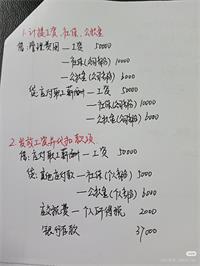 1. 计提工资、社保、公积金
借：管理费用 — 工资 50000
— 社保（公司部分）10000
— 公积金（公司部分）6000
贷：应付职工薪酬 — 工资 50000
— 社保（公司部分）10000
— 公积金（公司部分）6000
2. 发放工资并代扣款项
借：应付职工薪酬 — 工资 50000
贷：其他应付款 — 社保（个人部分）5000
— 公积金（个人部分）6000
应交税费 — 个人所得税 2000
银行存款 37000